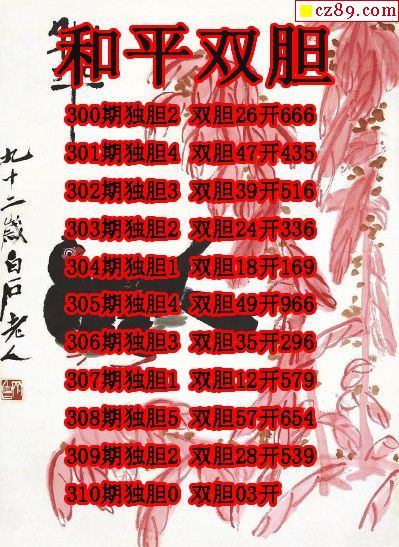 cz89.com
和平双胆
300期独胆2 双胆26开666
301期独胆4 双胆47开435
302期独胆3 双胆39开516
303期独胆2 双胆24开336
304期独胆1 双胆18开169
305期独胆4 双胆49开966
306期独胆3 双胆35开296
307期独胆1 双胆12开579
308期独胆5 双胆57开654
309期独胆2 双胆28开539
310期独胆0 双胆03开
九十二歲白石老人